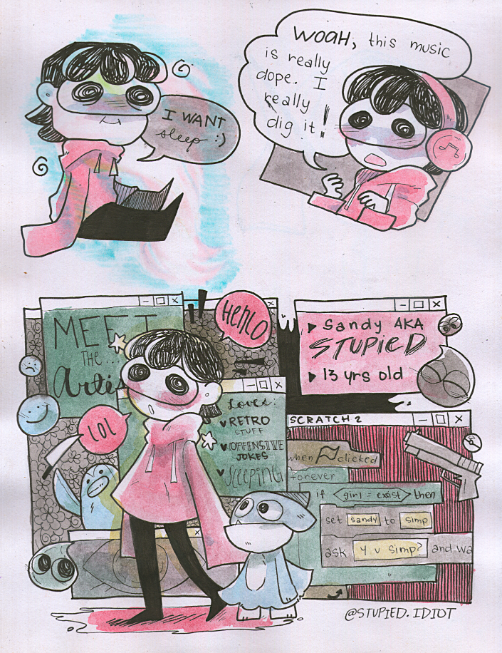 I WANT
sleep :)
WOAH, this music
is really
dope. I
really
dig it!
MEET
THE
Artist
!!
HENLO
▸ Sandy AKA
STUPIED
▸ 13 yrs old
LOL
Loves
♥ RETRO
STUFF
♥ OFFENSIVE
JOKES
♥ SLEEPING
SCRATCH 2
when clicked
forever
if girl = exist > then
set sandy to simp
ask y u simp? and wa
@STUPIED.IDIOT